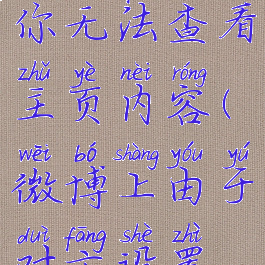 你无法查看
zhǔ yè nèi róng
主页内容(
wēi bó shàng yóu yú
微博上由于
duì fāng shè zhì
对方设置